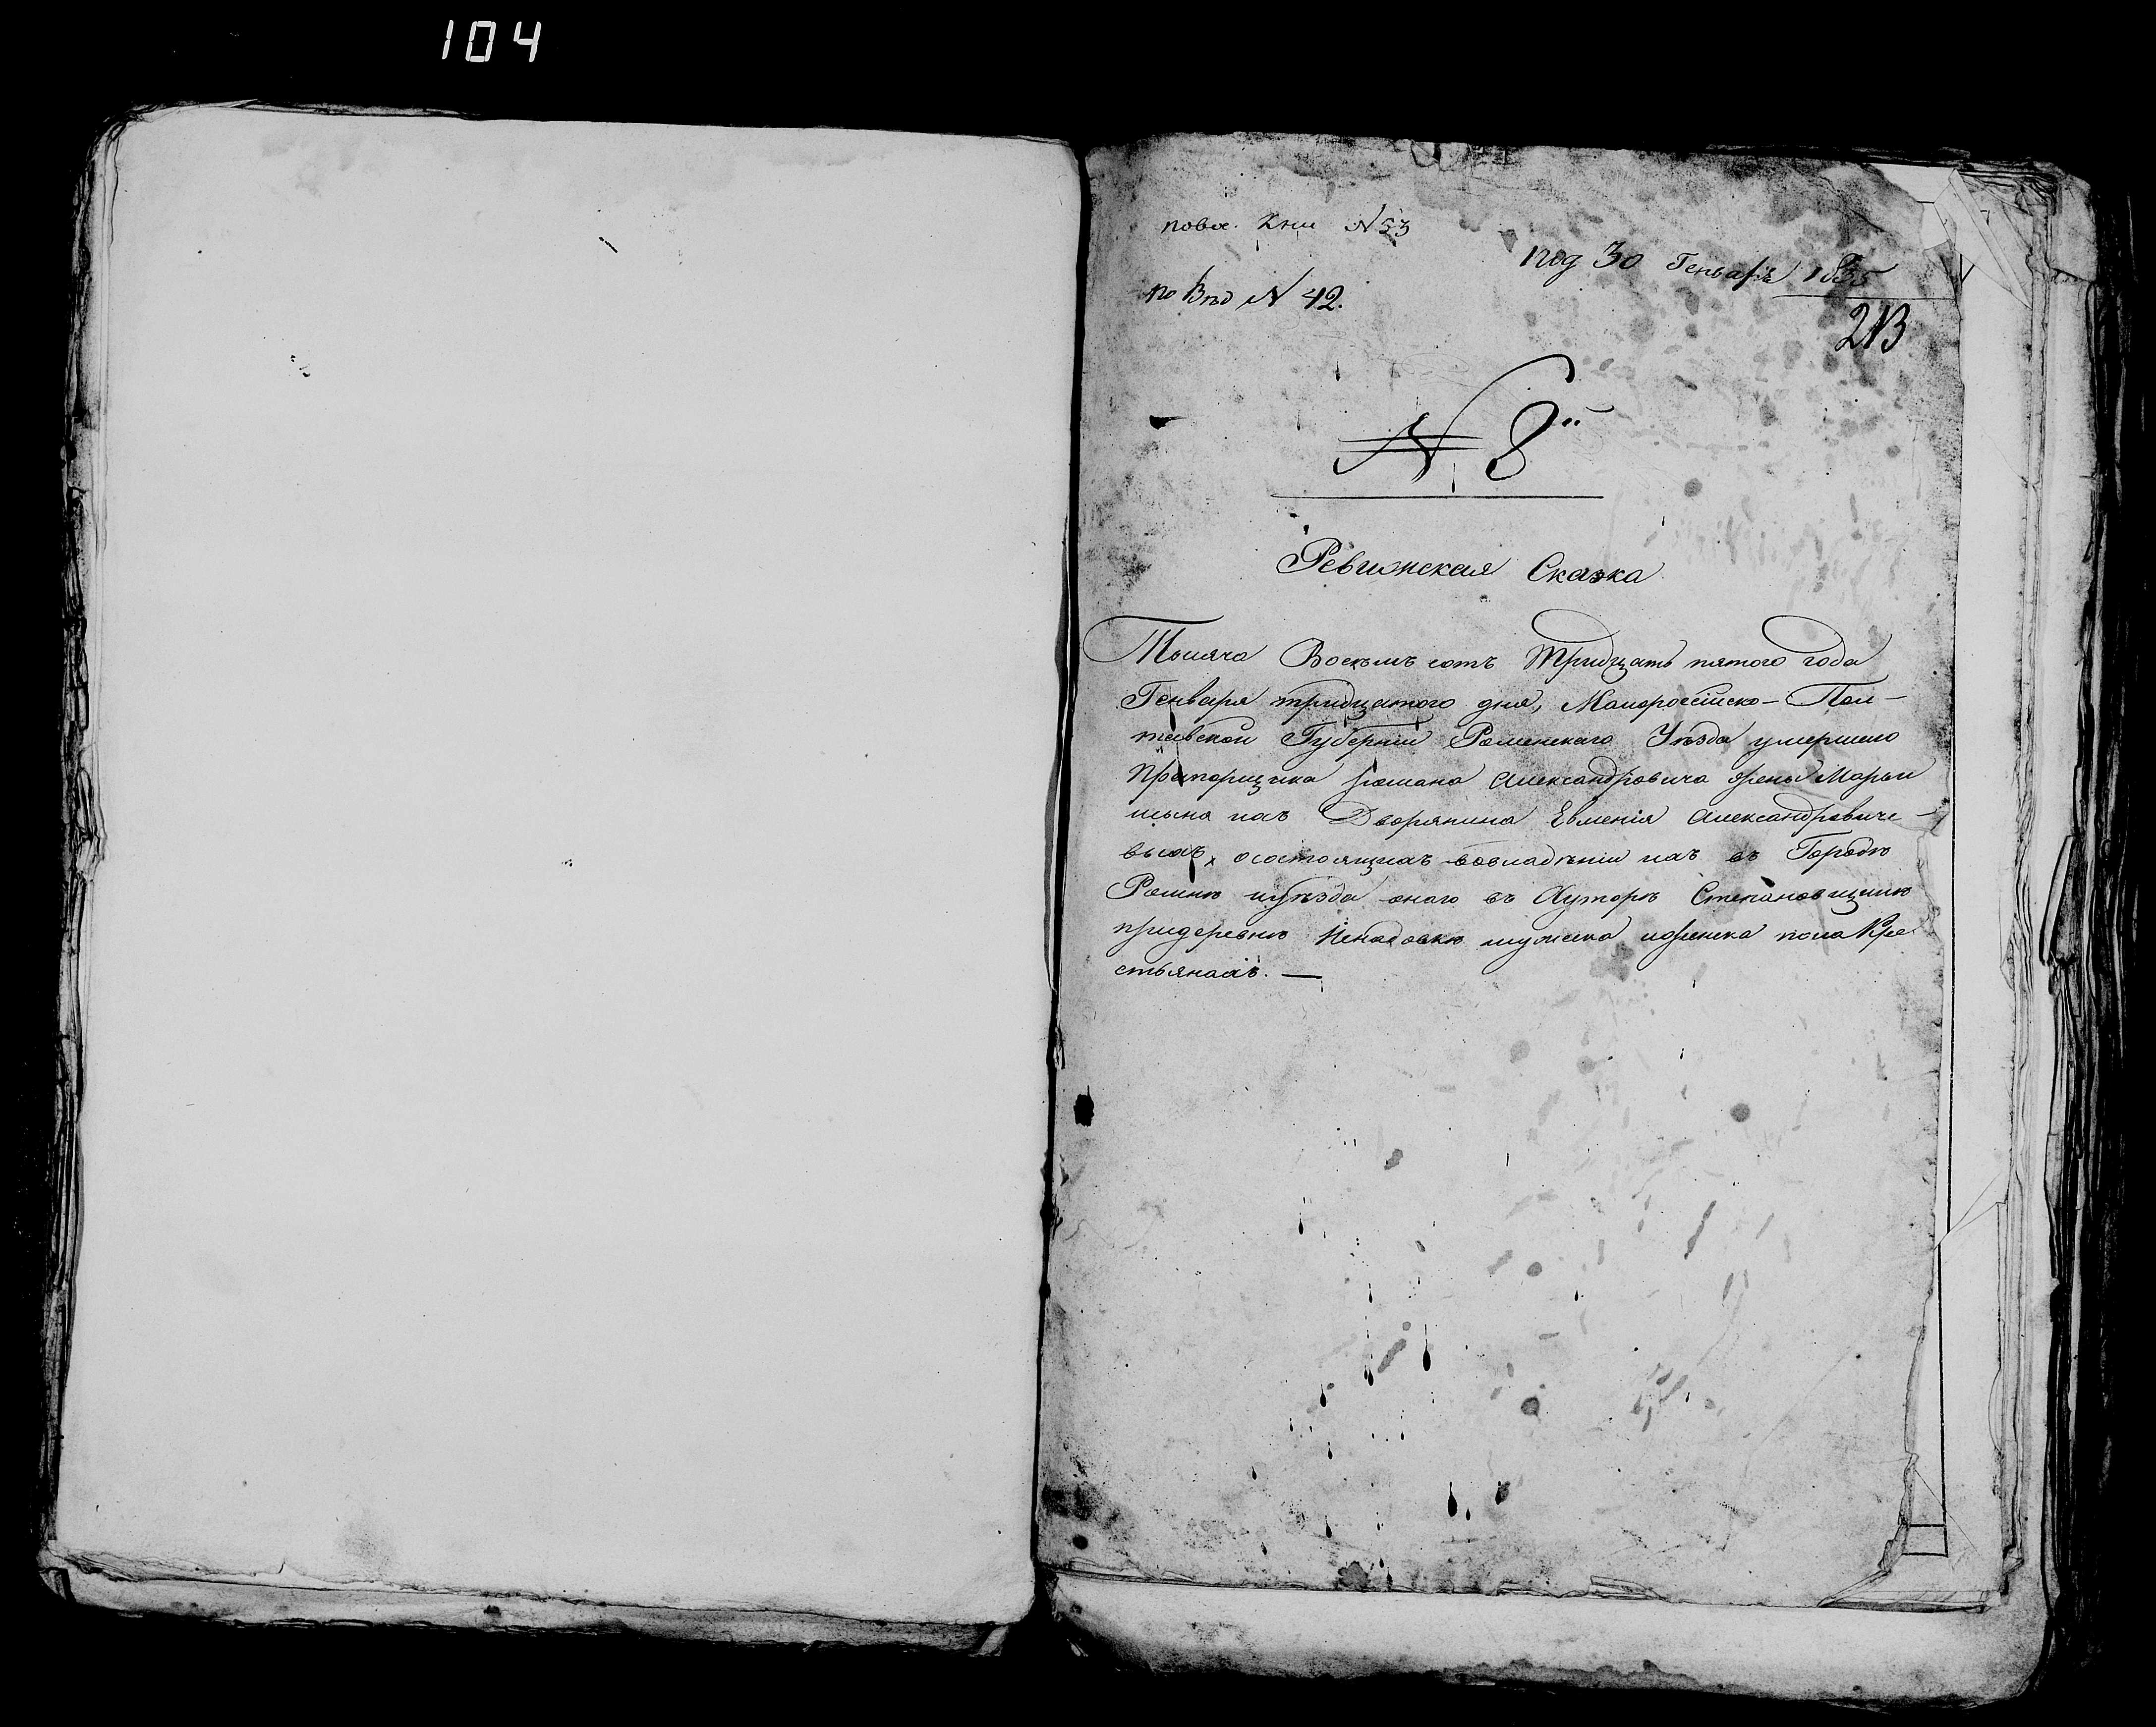 104
повх. Кни № 53
под 30 Генваря 1835
по Вѣд № 42.
213
№ 8й
Ревижская Сказка
Тысяча Восемъ сотъ Тридцать пятого года
Генваря тридцатого дня, Малороссійско-Пол-
тавской Губерніи Роменскаго Уѣзда умершего
Прапорщика Романа Александровича жены Марьи
исына ихъ Дворянина Евменія Александровиче-
выхъ, осостоящихъ вовладѣніи ихъ въ Городѣ
Ромнѣ иуѣзда оного въ Хуторѣ Степановщинѣ
придеревнѣ мужеска иженска пола Кре
стьянахъ. —